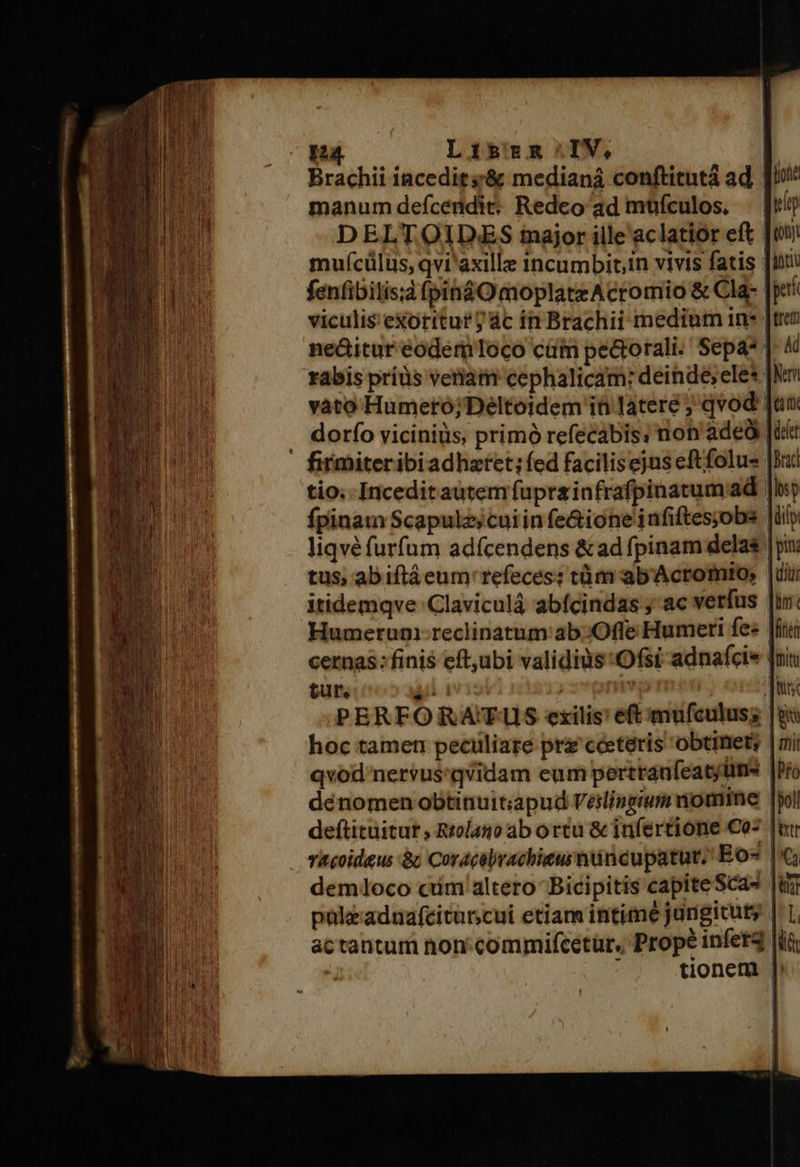 124 LIBER IV.
Brachii incedit, & medianâ conſtitutâ ad
manum deſcendit. Redeo ad muſculos.
DELTOIDES major ille ac latior eſt
muſcùlus, qvi axillæ incumbit, in vivis ſatis
ſenſibilis; à ſpinâ Omoplatæ Acromio & Cla-
viculis exoritur, ac in Brachii medium in-
nectitur eodem loco cùm pectorali. Sepa-
rabis priùs venam cephalicam; deinde, ele-
vato Humero, Deltoidem in latere, qvod
dorſo viciniùs, primò reſecabis, non adeò
firmiter ibi adhæret; ſed facilis ejus eſt ſolu-
tio. Incedit autem ſupra infraſpinatum ad
ſpinam Scapulæ, cui in ſectione inſiſtes, ob-
liqvè ſurſum adſcendens & ad ſpinam dela-
tus, ab iſtâ eum reſeces; tùm ab Acromio,
itidemqve Claviculâ abſcindas, ac verſus
Humerum reclinatum ab Oſſe Humeri ſe-
cernas: finis eſt, ubi validiùs Oſsi adnaſci-
tur.
PERFORATUS exilis eſt muſculus,
hoc tamen peculiare præ cœteris obtinet,
qvod nervus qvidam eum pertranſeat, un-
de nomen obtinuit; apud Veslingium nomine
deſtituitur, Riolano ab ortu & inſertione Co-
racoidæus & Coracobrachiæus nuncupatur. Eo-
dem loco cùm altero Bicipitis capite Sca-
pulæ adnaſcitur, cui etiam intimè jungitur,
ac tantum non commiſcetur. Propè inſer-
tionem